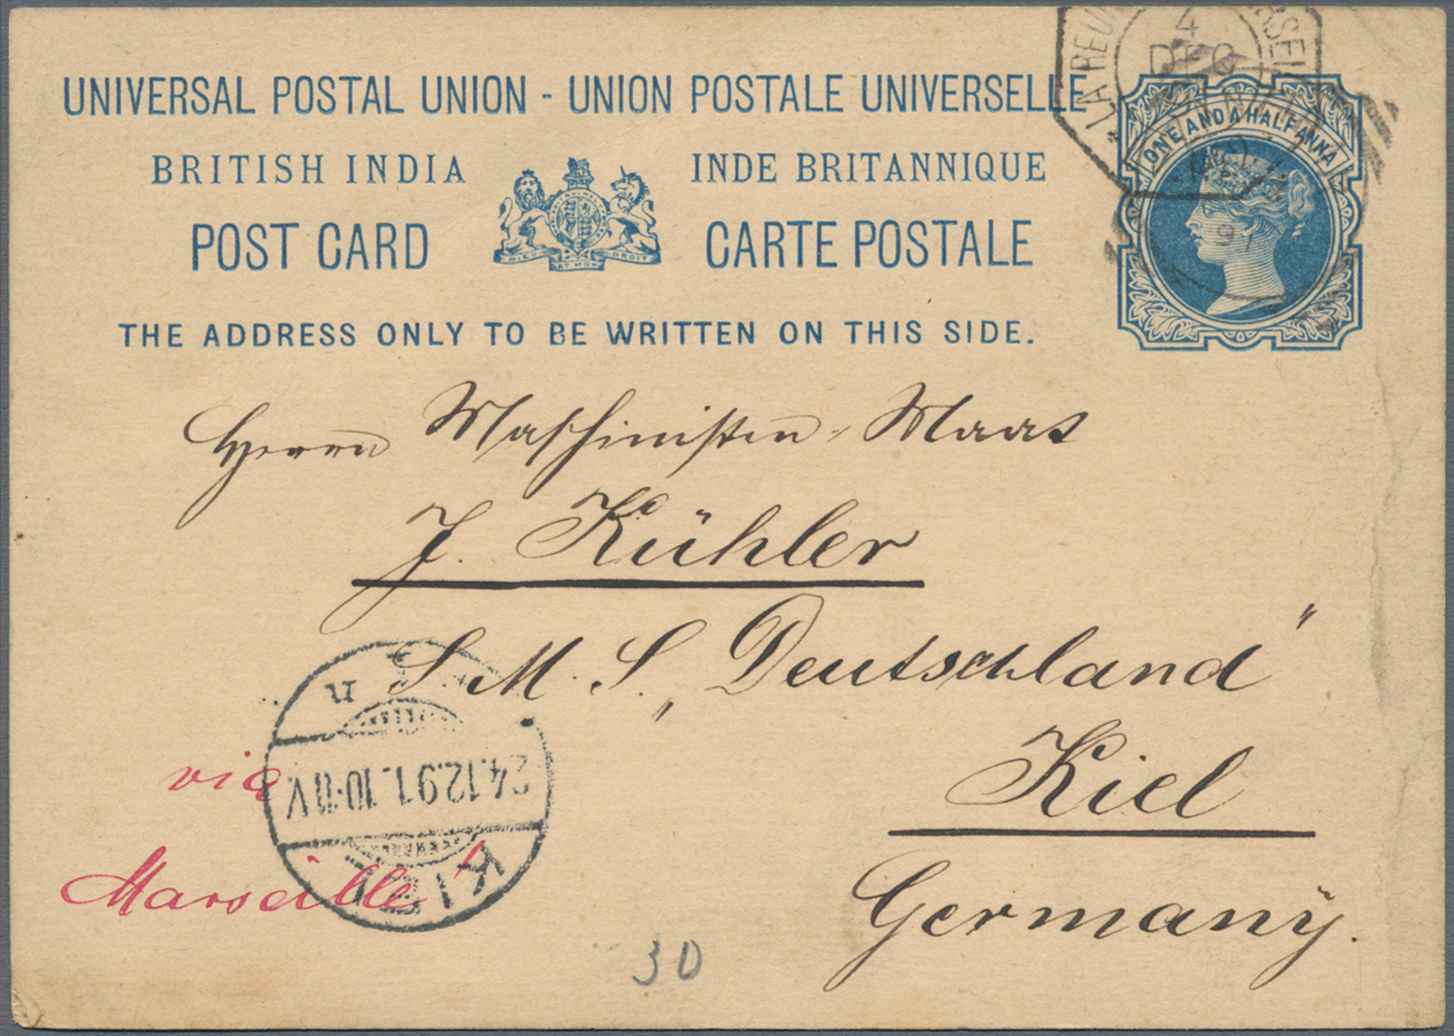 UNIVERSAL POSTAL UNION - UNION POSTALE UNIVERSELLE
BRITISH INDIA INDE BRITANNIQUE
POST CARD CARTE POSTALE
THE ADDRESS ONLY TO BE WRITTEN ON THIS SIDE.
DIEU ET MON DROIT
LA REU
4
DEC
91
ONE AND A HALF ANNA
Herrn Maschinisten-Maat
J. Kühler
S. M. S. „Deutschland"
Kiel
Germany.
via
Marseille!
KIEL
24.12.91. 10-11 V
30